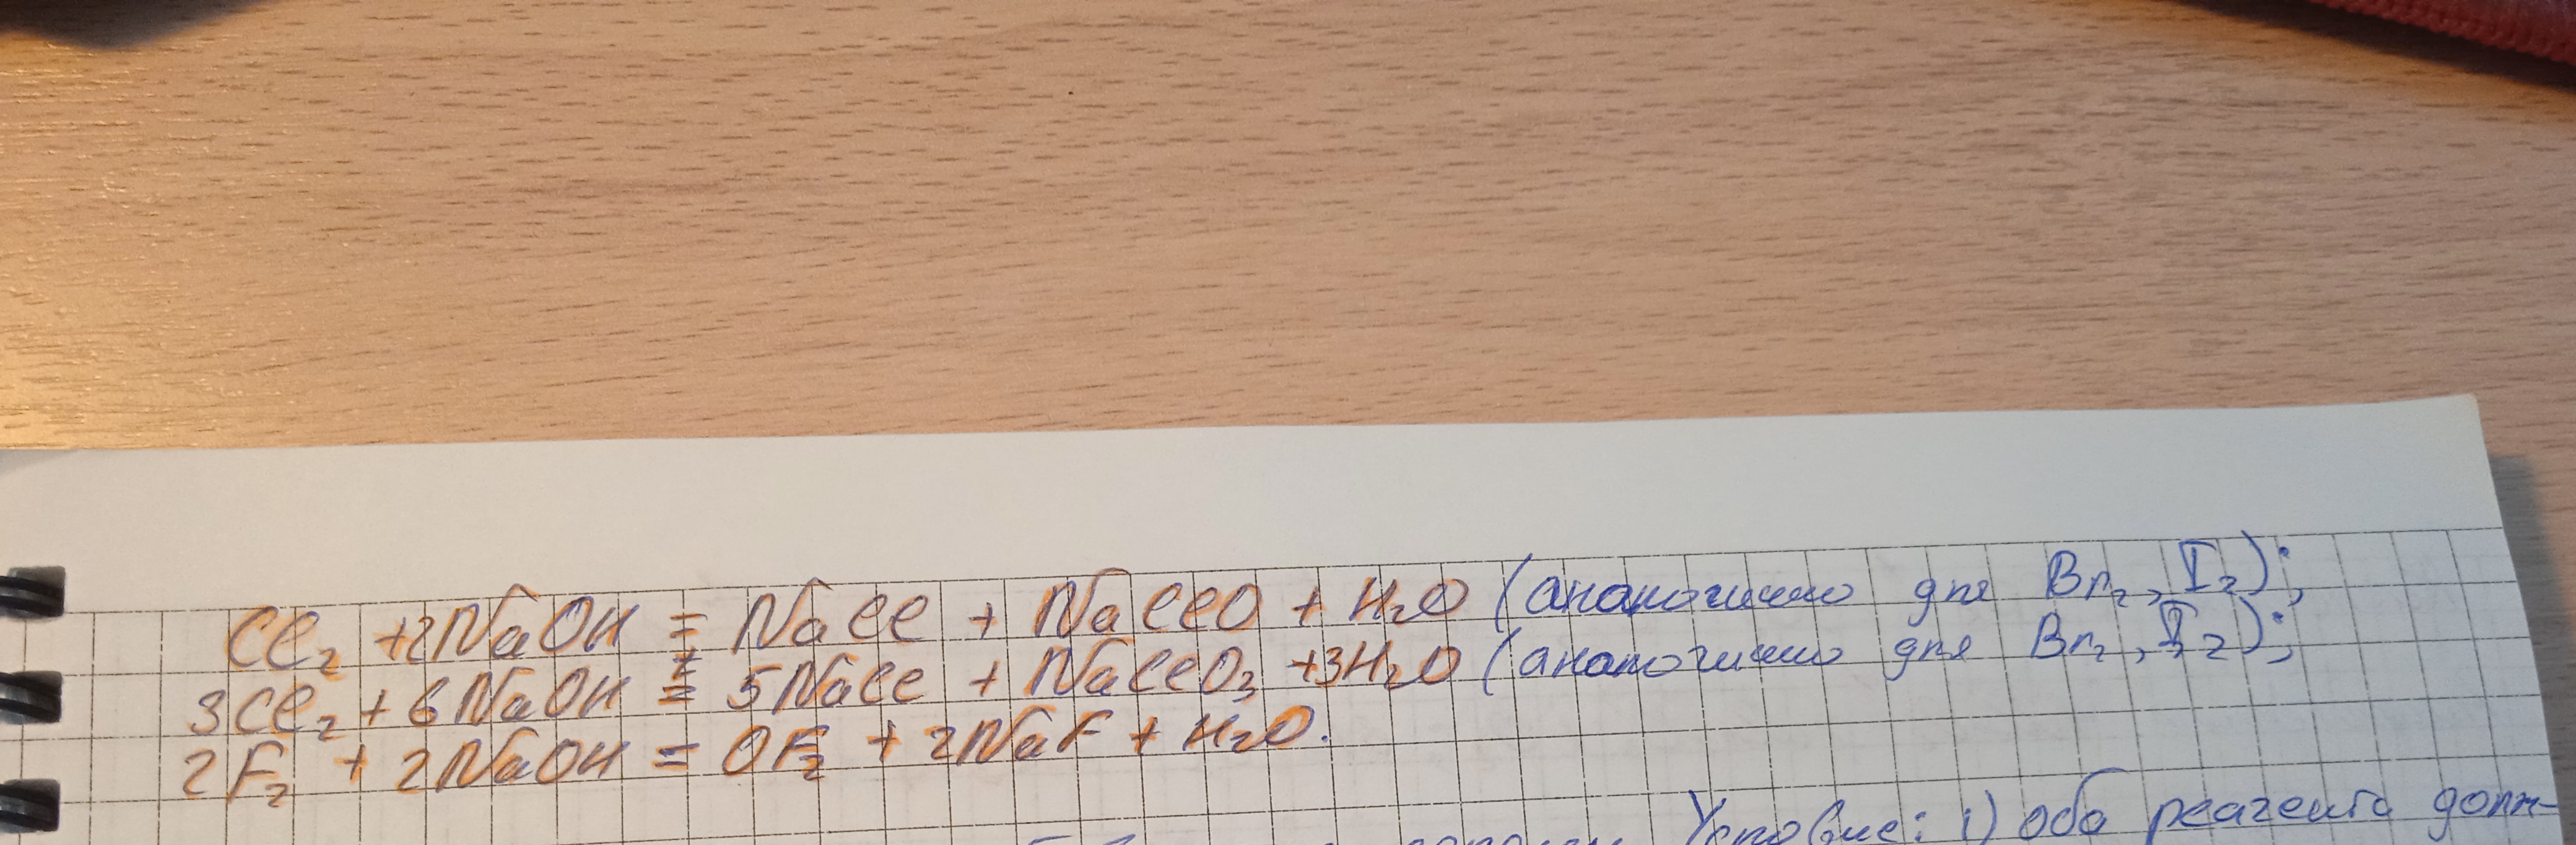 Cl₂ + 2NaOH = NaCl + NaClO + H₂O (аналогично для Br₂, I₂);
3Cl₂ + 6NaOH =ᵗ 5NaCl + NaClO₃ + 3H₂O (аналогично для Br₂, I₂);
2F₂ + 2NaOH = OF₂ + 2NaF + H₂O.
Условие: 1) оба реагента долж-